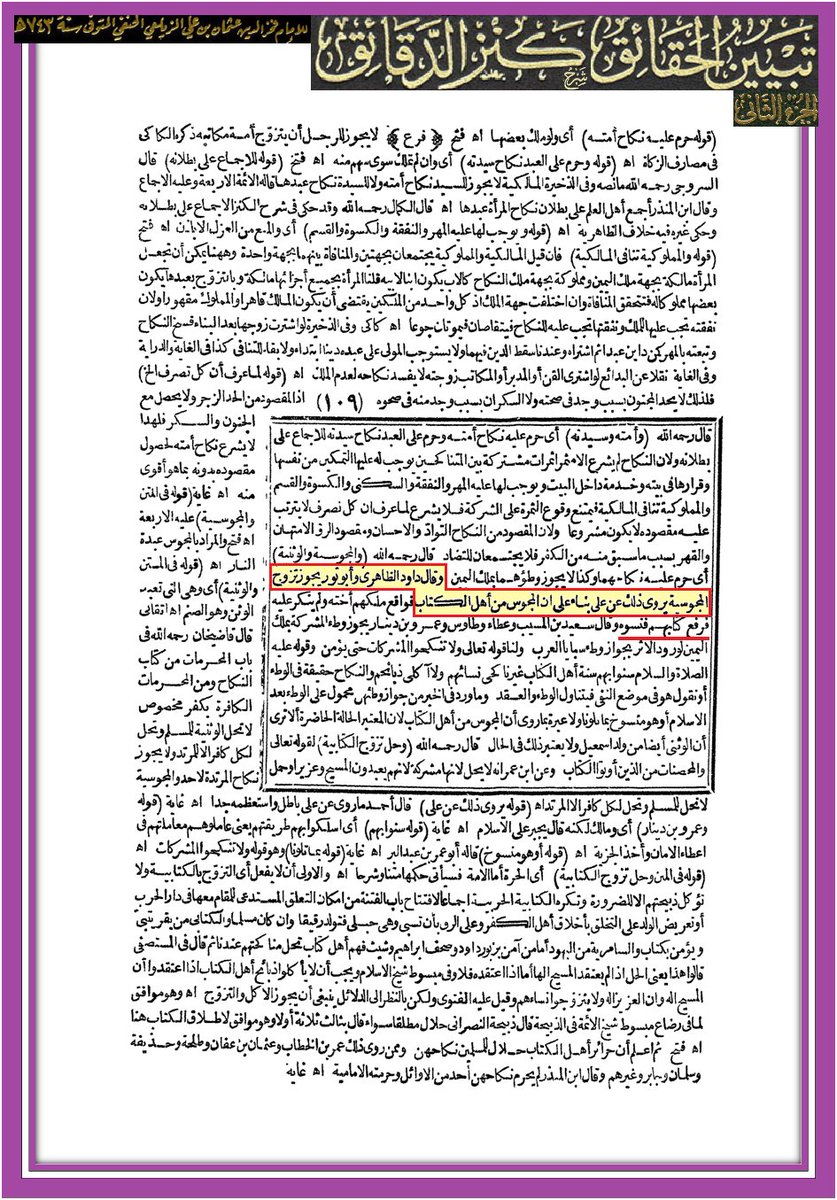 للإمام فخر الدين عثمان بن علي الزيلعي الحنفي المتوفى سنة ٧٤٣ھ
تبيين الحقائق شرح كنز الدقائق
الجزء الثاني
(قوله حرم عليه نكاح أمته) أى ولو ملك بعضها اه فتح ﴿فرع﴾ لا يجوز للرجل أن يتزوج أمة مكاتبه ذكره الكاكى
فى مصارف الزكاة اه (قوله وحرم على العبد نكاح سيدته) أى وان لم تملك سوى سهم منه اه فتح (قوله للاجماع على بطلانه) قال
السروجى رحمه الله مانصه وفى الذخيرة المالكية لا يجوز للسيد نكاح أمته ولا للسيدة نكاح عبدها قاله الائمة الاربعة وعليه الاجماع
وقال ابن المنذر أجمع أهل العلم على بطلان نكاح المرأة عبدها اه قال الكمال رحمه الله وقد حكى فى شرح الكنز الاجماع على بطلانه
وحكى غيره فيه خلاف الظاهرية اه (قوله ويوجب لها عليه المهر والنفقة والكسوة والقسم) أى والمنع من العزل الا باذن اه فتح
(قوله والمملوكية تنافى المالكية) فان قيل المالكية والمملوكية يجتمعان بجهتين والمنافاة بينهما بجهة واحدة وههنا يمكن أن تجعل
المرأة مالكة بجهة ملك اليمين ومملوكة بجهة ملك النكاح كالاب يكون ابنا لابيه قلنا المرأة بجميع أجزائها مالكة وبالتزوج بعبدها يكون
بعضها مملوكا له فتتحقق المنافاة وان اختلفت جهة الملك اذ كل واحد من الملكين يقتضى أن يكون المالك قاهرا والمملوك مقهورا ولان
نفقته تجب عليها للملك ونفقتها تجب عليه للنكاح فيتقاصان فيموتان جوعا اه كاكى وفى الذخيرة لو اشترت زوجها بعد البناء فسخ النكاح
وتبعته بالمهر كمن داين عبدا ثم اشتراه وعندنا سقط الدين فيهما ولا يستوجب المولى على عبده دينا ابتداء ولا بقاء للتنافى كذا فى الغاية والدراية
وفى الغاية نقلا عن البدائع لو اشترى القن أو المدبر أو المكاتب زوجته لا يفسد نكاحه لعدم الملك اه (قوله لما عرف أن كل تصرف الخ)
فلذلك لا يحد المجنون بسبب وجد فى صحته ولا السكران بسبب وجد منه فى صحوه (١٠٩) اذ المقصود من الحد الزجر ولا يحصل مع
قال رحمه الله (وأمته وسيدته) أى حرم عليه نكاح أمته وحرم على العبد نكاح سيدته للاجماع على
بطلانه ولان النكاح لم يشرع الا مثمرا ثمرات مشتركة بين المتناكحين يوجب له عليها التمكين من نفسها
وقرارها فى بيته وخدمة داخل البيت ويوجب لها عليه المهر والنفقة والسكنى والكسوة والقسم
والمملوكية تنافى المالكية فيمتنع وقوع الثمرة على الشركة فلا يشرع لما عرف ان كل تصرف لا يترتب
عليه مقصوده لا يكون مشروعا ولان المقصود من النكاح التواد والاحسان ومقصود الرق الامتهان
والقهر بسبب ما سبق منه من الكفر فلا يجتمعان للتضاد قال رحمه الله (والمجوسية والوثنية)
أى حرم عليه نكاحهما وكذا لا يجوز وطؤهما بملك اليمين وقال داود الظاهرى وأبو ثور يجوز تزوج
المجوسية يروى ذلك عن على بناء على ان المجوس من أهل الكتاب فواقع ملكهم أخته ولم ينكر عليه
فرفع كتابهم فنسوه وقال سعيد بن المسيب وعطاء وطاوس وعمرو بن دينار يجوز وطء المشركة بملك
اليمين لورود الاثر بجواز وطء سبايا العرب ولنا قوله تعالى ولا تنكحوا المشركات حتى يؤمن وقوله عليه
الصلاة والسلام سنوا بهم سنة أهل الكتاب غير ناكحى نسائهم ولا آكلى ذبائحهم والنكاح حقيقة فى الوطء
أو نقول هو فى موضع النفى فيتناول الوطء والعقد وما ورد فى الخبر من جواز وطئهن محمول على الوطء بعد
الاسلام أو هو منسوخ بما تلونا ولا عبرة بما روى أن المجوس من أهل الكتاب لان المعتبر الحالة الحاضرة ألا ترى
أن الوثنى أيضا من ولد اسمعيل ولا يعتبر ذلك فى الحال قال رحمه الله (وحل تزوج الكتابية) لقوله تعالى
والمحصنات من الذين أوتوا الكتاب وعن ابن عمر انه لا يحل لانها مشركة لانهم يعبدون المسيح وعزيرا وحمل
الجنون والسكر فلهذا
لا يشرع نكاح أمته لحصول
مقصوده دونه بما هو أقوى
منه اه غاية (قوله فى المتن
والمجوسية) عليه الاربعة
اه فتح والمراد بالمجوس عبدة
النار اه (قوله فى المتن
والوثنية) أى وهى التى تعبد
الوثن وهو الصنم اه اتقانى
قال قاضيخان رحمه الله فى
باب المحرمات من كتاب
النكاح ومن المحرمات
الكافرة بكفر مخصوص
لا تحل الوثنية للمسلم وتحل
لكل كافر الا للمرتد ولا يجوز
نكاح المرتدة لاحد والمجوسية
لا تحل للمسلم وتحل لكل كافر الا المرتد اه (قوله يروى ذلك عن على) قال أحمد ما روى عن على باطل واستعظمه جدا اه غاية (قوله
وعمرو بن دينار) أى ومالك لكنه قال يجبر على الاسلام اه غاية (قوله سنوا بهم) أى اسلكوا بهم طريقتهم يعنى عاملوهم معاملتهم فى
اعطاء الامان وأخذ الجزية اه (قوله أو هو منسوخ) قاله أبو عمر بن عبد البر اه غاية (قوله بما تلونا) وهو قوله ولا تنكحوا المشركات اه
(قوله فى المتن وحل تزوج الكتابية) أى الحرة أما الامة فسيأتى حكمها متنا وشرحا اه والاولى أن لا يفعل أى التزوج بالكتابية ولا
تؤكل ذبيحتهم الا للضرورة وتكره الكتابية الحربية اجماعا لافتتاح باب الفتنة من امكان التعلق المستدعى للمقام معها فى دار الحرب
أو تعريض الولد على التخلق بأخلاق أهل الكفر وعلى الرق بأن تسبى وهى حبلى فتولد رقيقا وان كان مسلما والكتابى من يقر بنبى
ويؤمن بكتاب والسامرية من اليهود أما من آمن بزبور داود وصحف ابراهيم وشيث فهم أهل كتاب تحل مناكحتهم عندنا ثم قال فى المستصفى
قالوا هذا يعنى الحل اذا لم يعتقد المسيح الها أما اذا اعتقده فلا وفى مبسوط شيخ الاسلام ويجب أن لا يأكلوا ذبائح أهل الكتاب اذا اعتقدوا أن
المسيح اله وان العزير اله ولا يتزوجوا نساءهم وقيل عليه الفتوى ولكن بالنظر الى الدلائل ينبغى أن يجوز الاكل والتزوج اه وهو موافق
لما فى رضاع مبسوط شمس الائمة فى الذبيحة قال ذبيحة النصرانى حلال مطلقا سواء قال بثالث ثلاثة أولا وهو موافق لاطلاق الكتاب هنا
اه فتح ثم اعلم أن حرائر أهل الكتاب حلال للمسلمين نكاحهن وممن روى ذلك عمر بن الخطاب وعثمان بن عفان وطلحة وحذيفة
وسلمان وجابر وغيرهم وقال ابن المنذر لم يحرم نكاحهن أحد من الاوائل وحرمته الامامية اه غاية